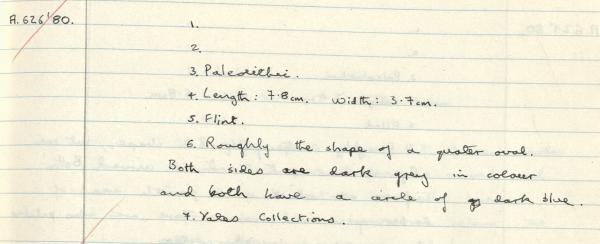 A.626'80.
1.
2.
3. Paleolithic.
4. Length: 7.8cm. width: 3.7cm.
5. Flint.
6. Roughly the shape of a quater oval.
Both sides are dark grey in colour
and both have a circle of dark blue.
7. Yates Collections.